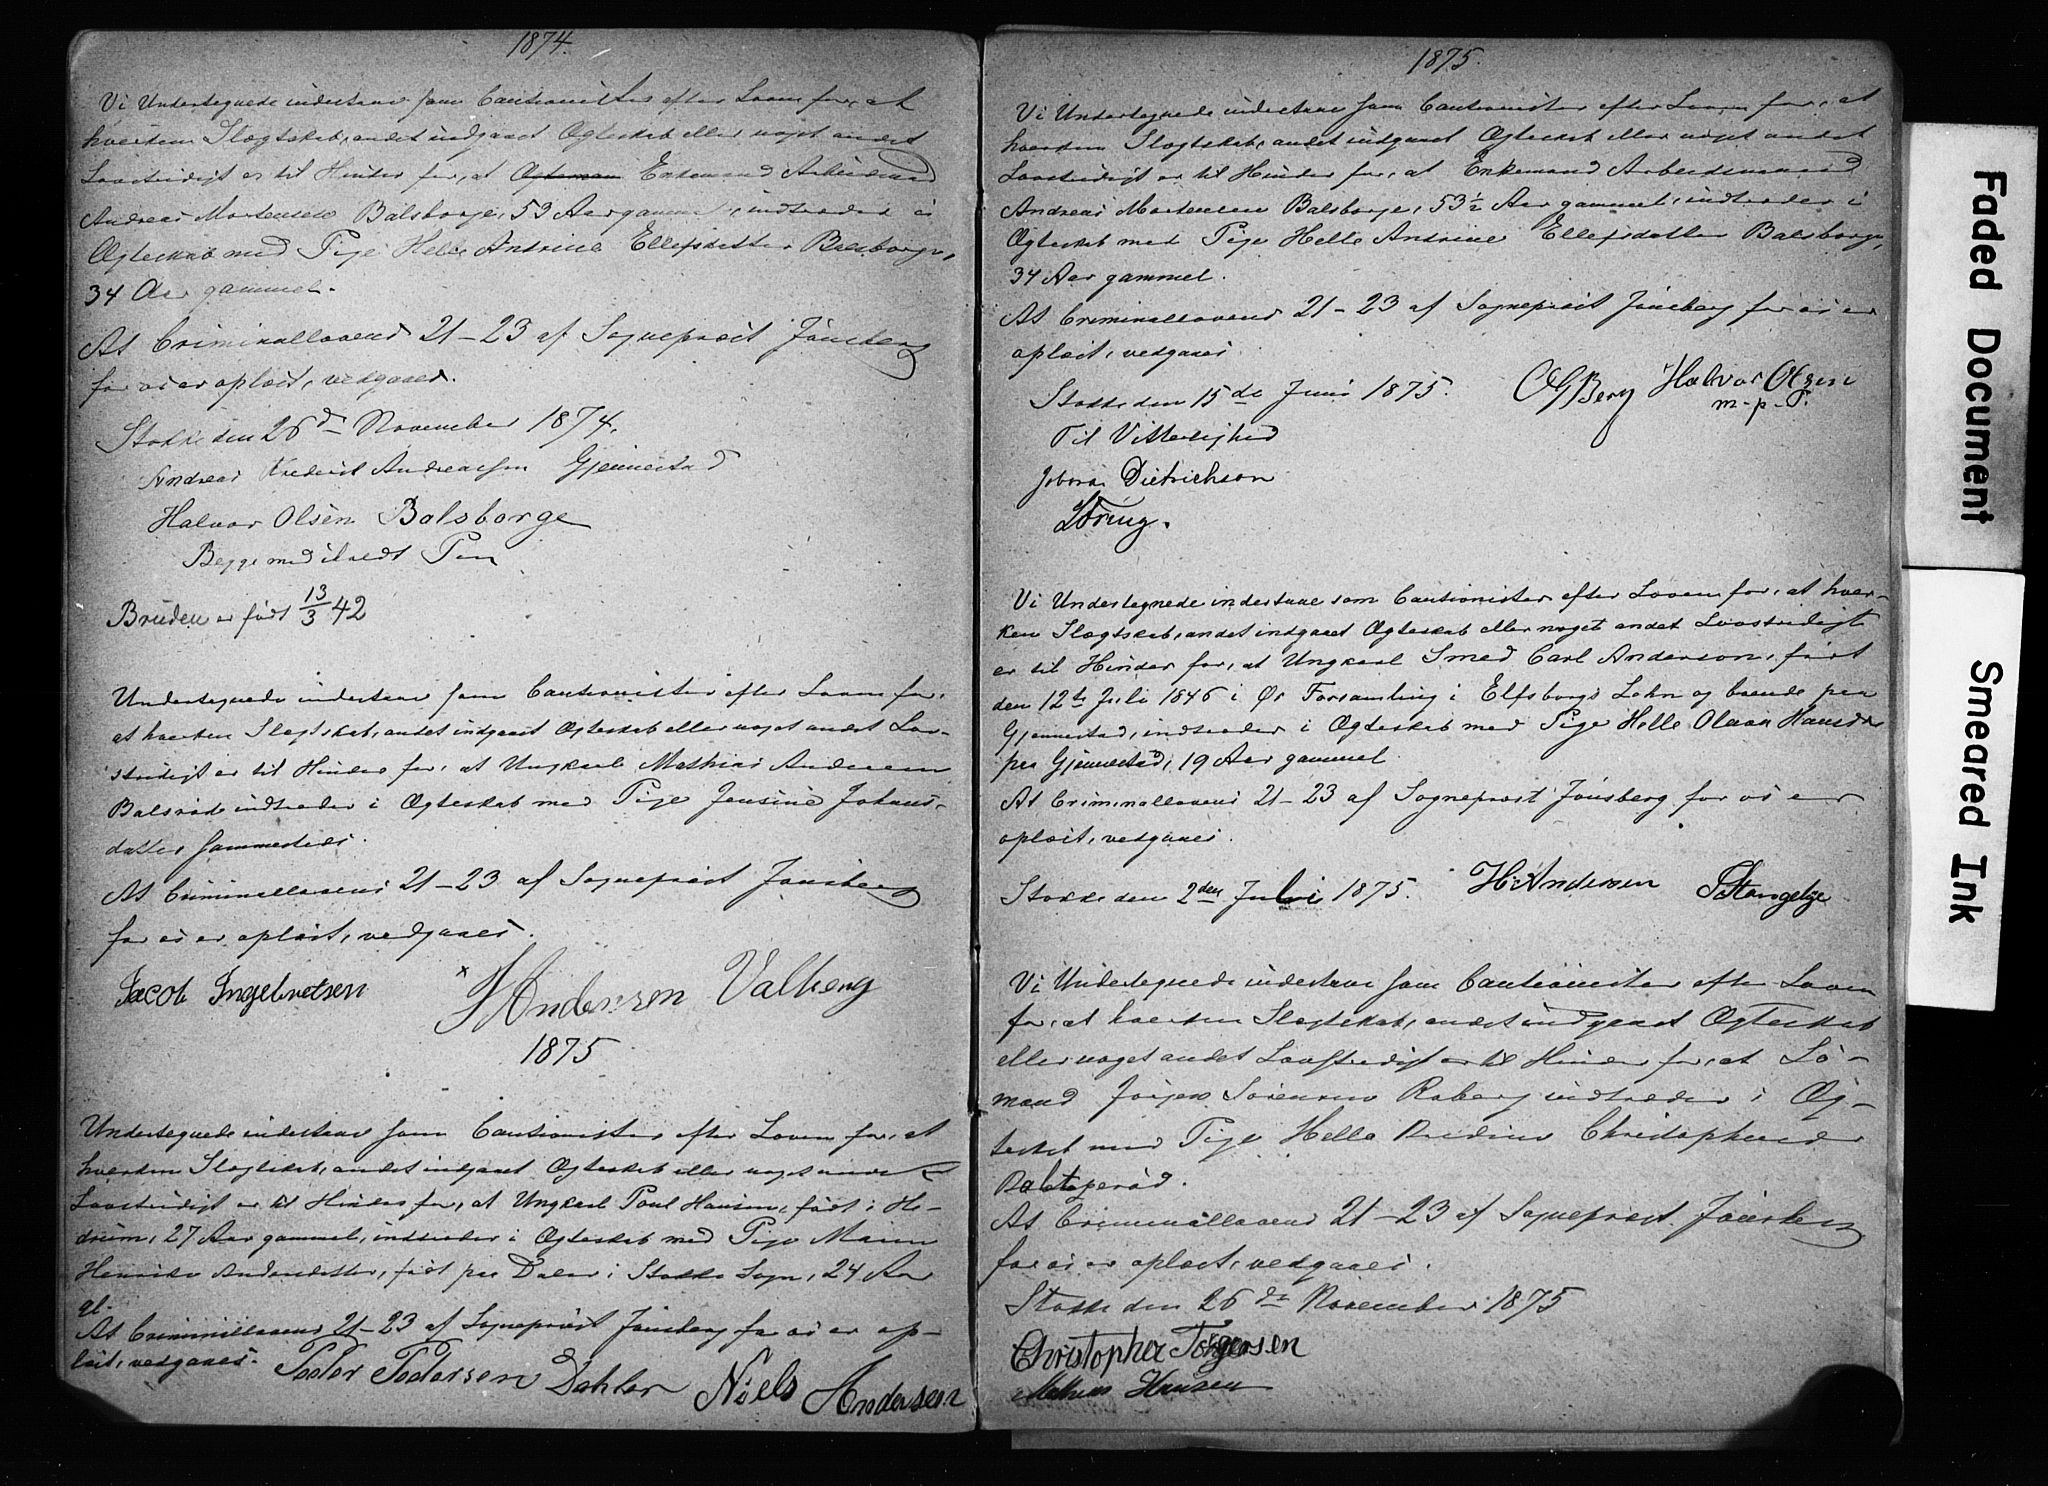 1874.
Vi Undertegnede indestaae som Cautionister efter Loven for, at
hverken Slægtskab, andet indgaaet Ægteskab eller noget andet
Lovstridigt er til Hinder for, at Enkemand Arbeidsmand
Andreas Mortensen Balsborge, 53 Aar gammel, indtræder i
Ægteskab med Pige Helle Andrine Ellefsdatter Balsborge,
34 Aar gammel.
At Criminallovens 21-23 af Sogneprest Jönsberg
for os er oplæst, vedgaaes.
Stokke den 26d November 1874.
Andreas Frederik Andreassen Gjennestad
Halvor Olsen Balsborge
Begge med iholdt Pen
Bruden er født 13/3 42
Undertegnede indestaae som Cautionister efter Loven for,
at hverken Slægtskab, andet indgaaet Ægteskab eller noget andet Lov-
stridigt er til Hinder for, at Ungkarl Mathias Andersen
Balsrøde indtræder i Ægteskab med Pige Jensine Johans-
datter sammesteds.
At Criminallovens 21-23 af Sogneprest Jönsberg
for os er oplæst, vedgaaes.
Jacob Ingebretsen H Andersen Valberg
1875
Undertegnede indestaae som Cautionister efter Loven for, at
hverken Slægtskab, andet indgaaet Ægteskab eller noget andet
Lovstridigt er til Hinder for, at Ungkarl Poul Hansen, født i He-
drum, 27 Aar gammel, indtræder i Ægteskab med Pige Maren
Henrikke Andersdatter, født paa Dalen i Stokke Sogn, 24 Aar
gl.
At Criminallovens 21-23 af Sogneprest Jönsberg for os er op-
læst, vedgaaes. Peder Pedersen Dahler Niels Andersen
1875.
Vi Undertegnede indestaae som Cautionister efter Loven for, at
hverken Slægtskab, andet indgaaet Ægteskab eller noget andet
Lovstridigt er til Hinder for, at Enkemand Arbeidsmand
Andreas Mortensen Balsborge, 53½ Aar gammel, indtræder i
Ægteskab med Pige Helle Andrine Ellefsdatter Balsborge,
34 Aar gammel.
At Criminallovens 21-23 af Sogneprest Jönsberg for os er
oplæst, vedgaaes.
Stokke den 15de Juni 1875. Berg Halvor Olsen
m. p. P.
Til Vitterlighed
Dietrichson
Vi Undertegnede indestaae som Cautionister efter Loven for, at hver-
ken Slægtskab, andet indgaaet Ægteskab eller noget andet Lovstridigt
er til Hinder for, at Ungkarl Smed Carl Anderson, født
den 12te Juli 1846 i Ør Forsamling i Elfsborgs Lehn og boende paa
Gjennestad, indtræder i Ægteskab med Pige Helle Olava Hansdr
paa Gjennestad, 19 Aar gammel.
At Criminallovens 21-23 af Sogneprest Jönsberg for os er
oplæst, vedgaaes.
Stokke den 2den Juli 1875. H. Andersen
Vi Undertegnede indestaae som Cautionister efter Loven
for, at hverken Slægtskab, andet indgaaet Ægteskab
eller noget andet Lovstridigt er til Hinder for, at Sö-
mand Jörgen Sörensen Raberg indtræder i Æg-
teskab med Pige Helle Christophersdr
At Criminallovens 21-23 af Sogneprest Jönsberg
for os er oplæst, vedgaaes.
Stokke den 26de November 1875
Christopher Törgersen
Mathias Hansen
Faded Document
Smeared Ink